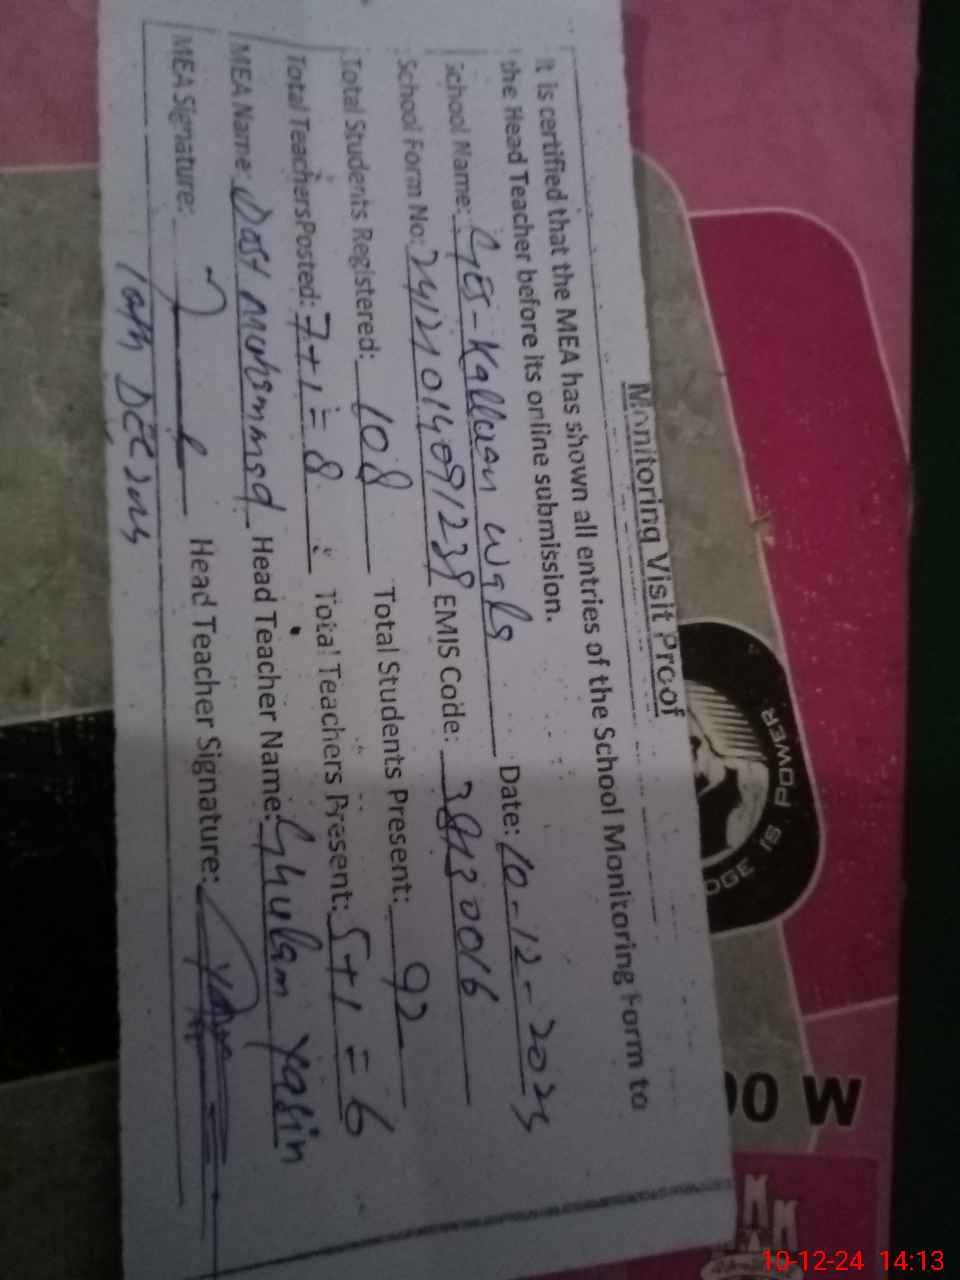 Monitoring Visit Proof
It is certified that the MEA has shown all entries of the School Monitoring Form to
the Head Teacher before its online submission.
School Name: GES-Kalluan wala Date: 10-12-2025
School Form No: EMIS Code:
Total Students Registered: 108 Total Students Present: 92
Total Teachers Posted: 7+1=8 Total Teachers Present: 5+1=6
MEA Name: Dost Muhammad Head Teacher Name: Ghulam Yasin
MEA Signature: Head Teacher Signature:
10th DEC 2025
POWER
IS
DGE
00 W
10-12-24 14:13